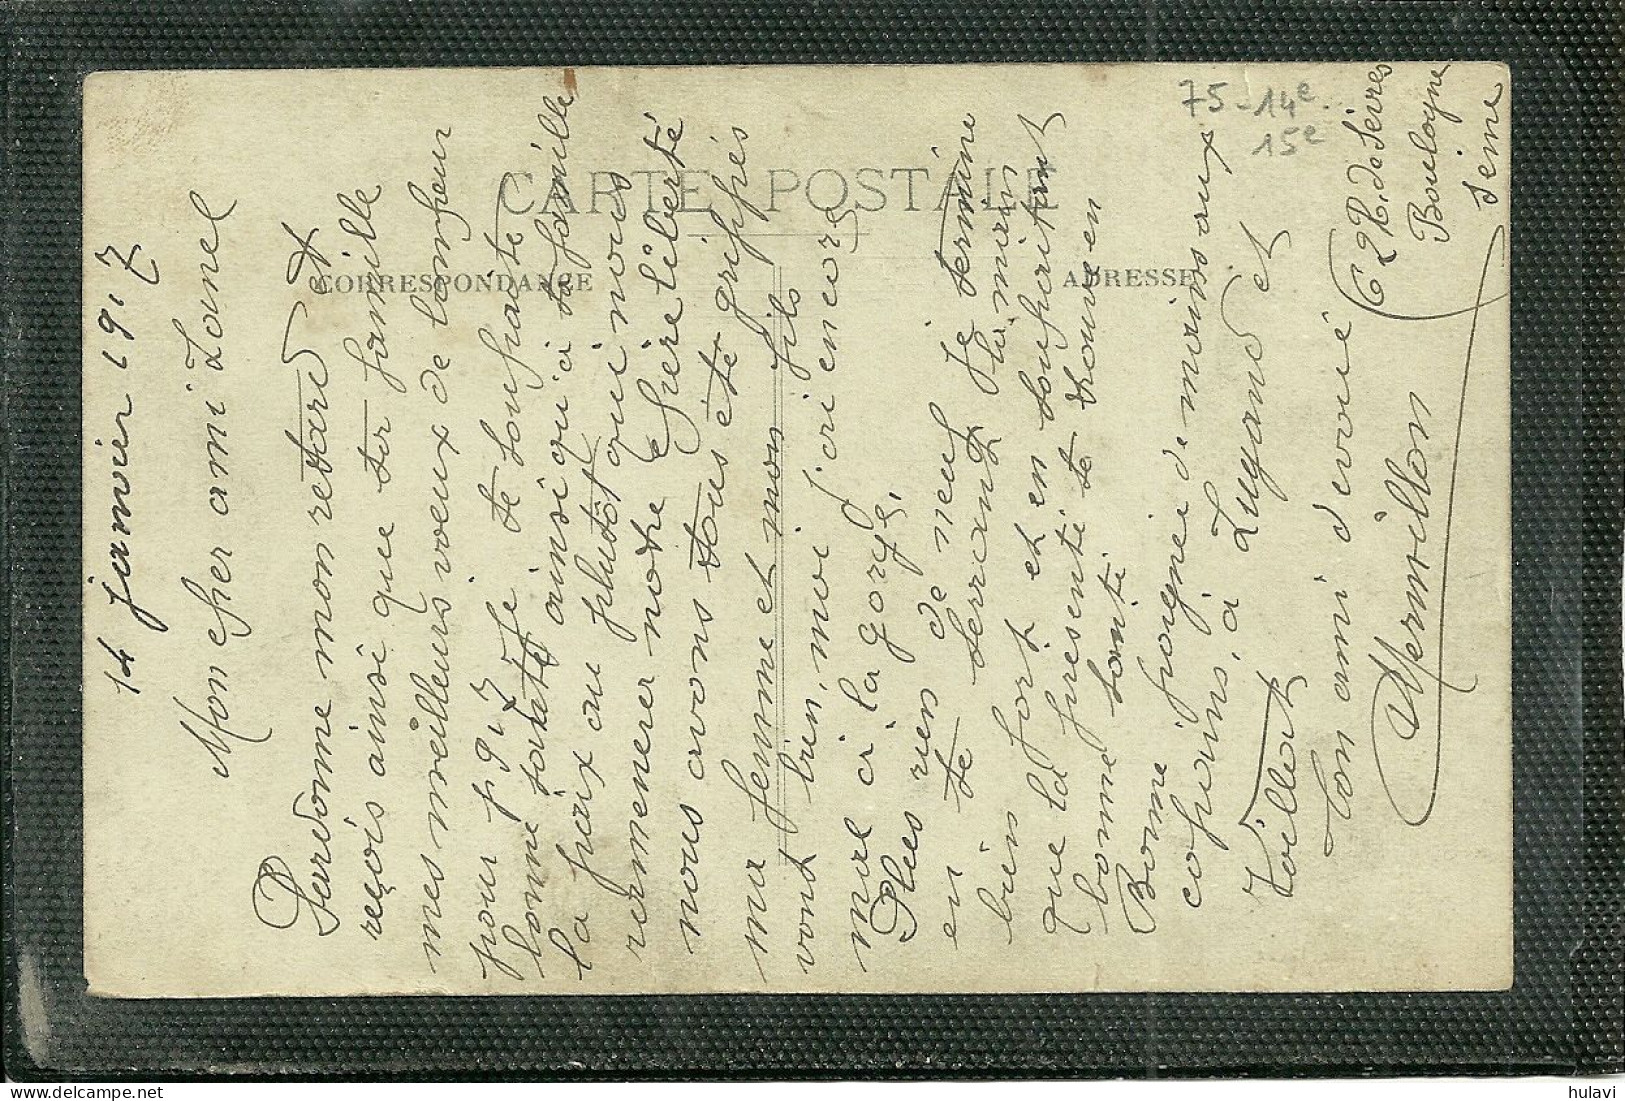 14 janvier 1917
Mon cher ami Lanel
Pardonne mon retard et
reçois ainsi que ta famille
mes meilleurs voeux de bonheur
pour 1917. Je te souhaite
bonne santé ainsi qu'à ta famille
la paix au plutôt qui nous
ramenera notre chère liberté
nous avons tous été grippés
ma femme et mon fils
vont bien, moi j'ai encore
mal à la gorge,
Plus rien de neuf je termine
en te serrant la main
bien fort et en souhaitant
que la présente te trouve en
bonne santé
Bonne poignée de mains aux
copains, à Lugand et
Voillot
Ton ami dévoué
Mermillon
62 R. de Sèvres
Boulogne
Seine
CARTE POSTALE
CORRESPONDANCE
ADRESSE
75-14e
15e
https://www.delcampe.net
hulavi